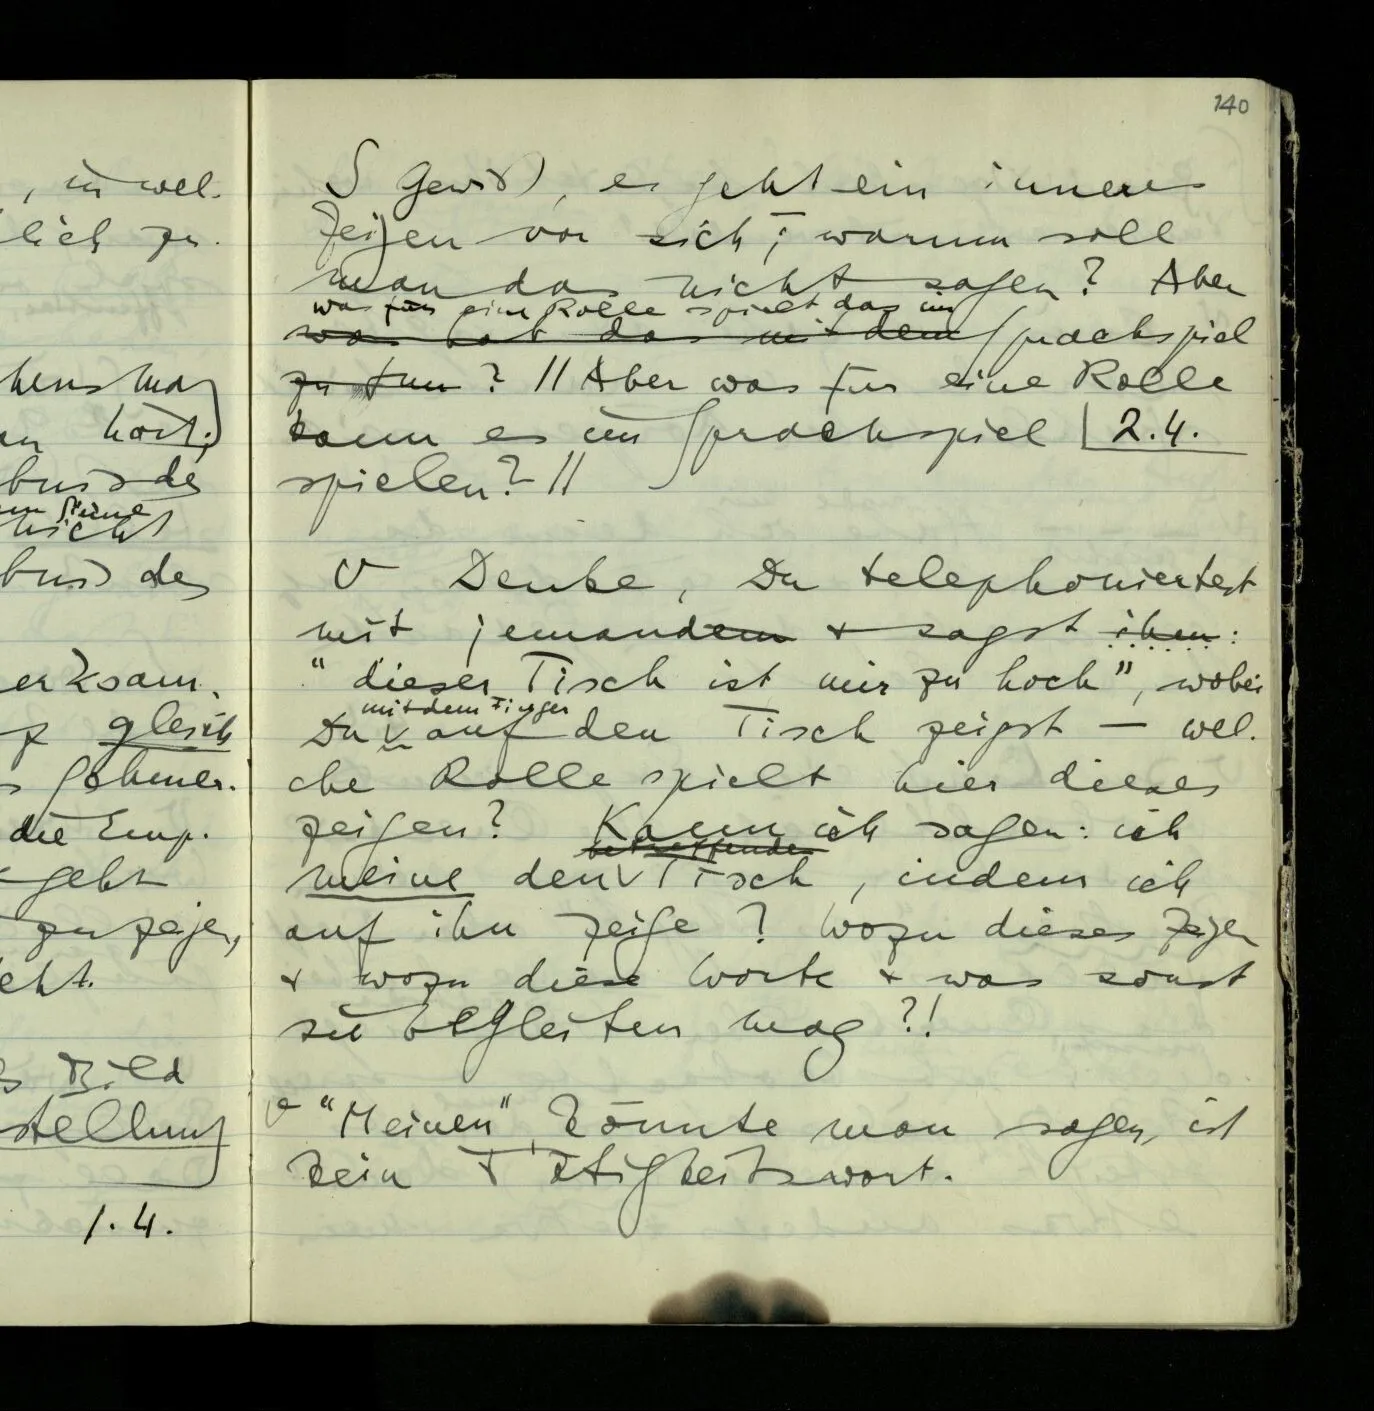 , in wel-
lich zu-
hörst;
gleich
die Emp-
geht
zu zeigen,
Bild
stellung
1.4.
140
S Gewiß, es geht ein inneres
Zeigen vor sich; warum soll
man das nicht sagen? Aber
was für eine Rolle spielt das im
was hat das mit dem Sprachspiel
zu tun? // Aber was für eine Rolle
kann es im Sprachspiel | 2.4.
spielen? //
V Denke, Du telephoniertest
mit jemandem + sagst ihm:
"dieser Tisch ist mir zu hoch", wobei
mit dem Finger
Du auf den Tisch zeigst — wel-
che Rolle spielt hier dieses
zeigen? Kann ich sagen: ich
betreffenden
meine den Tisch, indem ich
auf ihn zeige? Wozu dieses Zeigen
+ wozu diese Worte + was sonst
sie begleiten mag?!
"Meinen", könnte man sagen, ist
kein Tätigkeitswort.